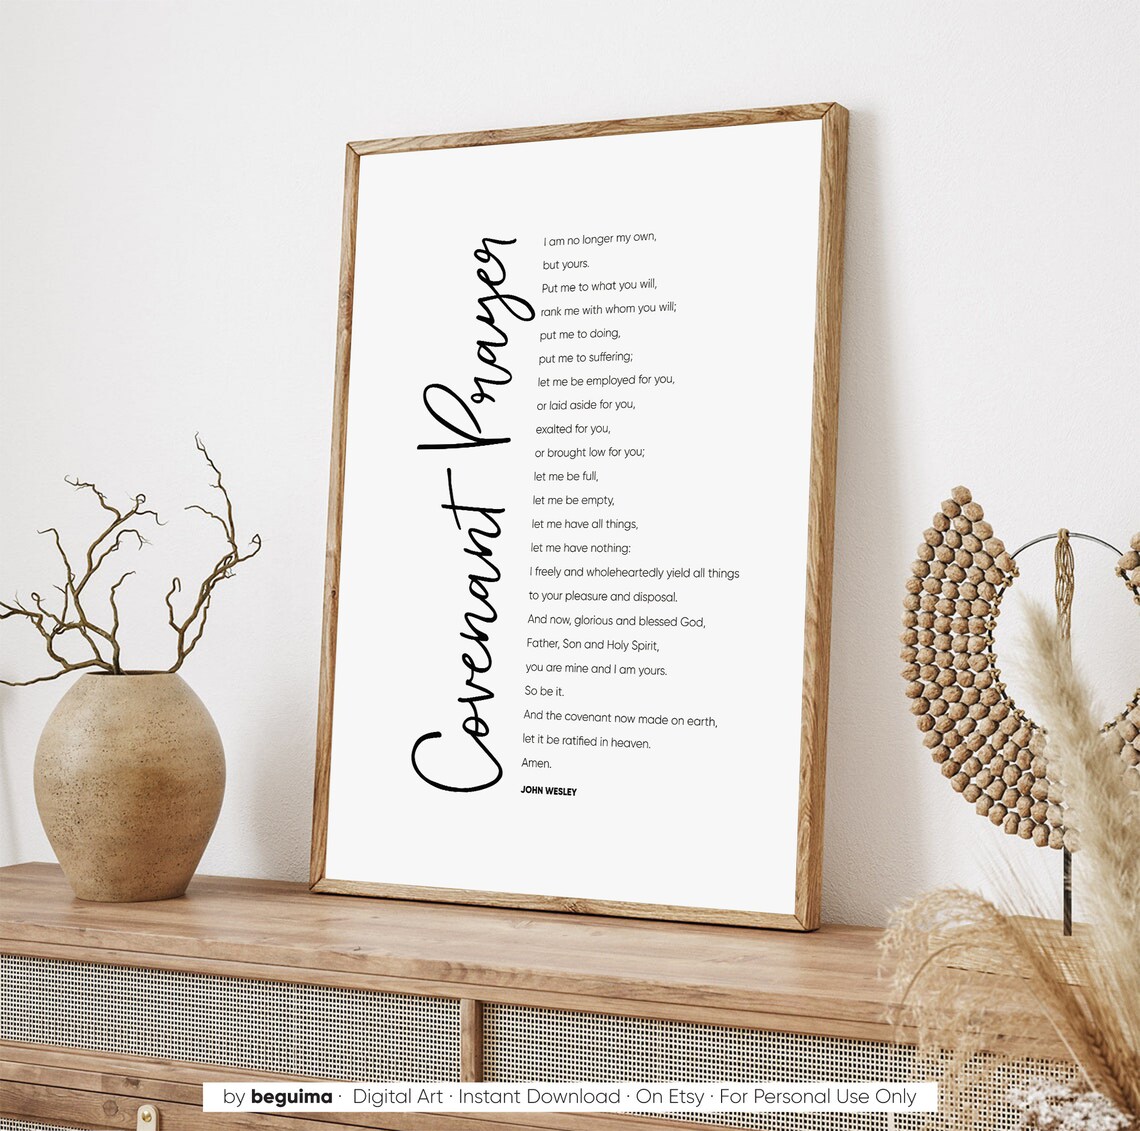 Covenant Prayer
I am no longer my own,
but yours.
Put me to what you will,
rank me with whom you will;
put me to doing,
put me to suffering;
let me be employed for you,
or laid aside for you,
exalted for you,
or brought low for you;
let me be full,
let me be empty,
let me have all things,
let me have nothing:
I freely and wholeheartedly yield all things
to your pleasure and disposal.
And now, glorious and blessed God,
Father, Son and Holy Spirit,
you are mine and I am yours.
So be it.
And the covenant now made on earth,
let it be ratified in heaven.
Amen.
JOHN WESLEY
by beguima · Digital Art · Instant Download · On Etsy · For Personal Use Only